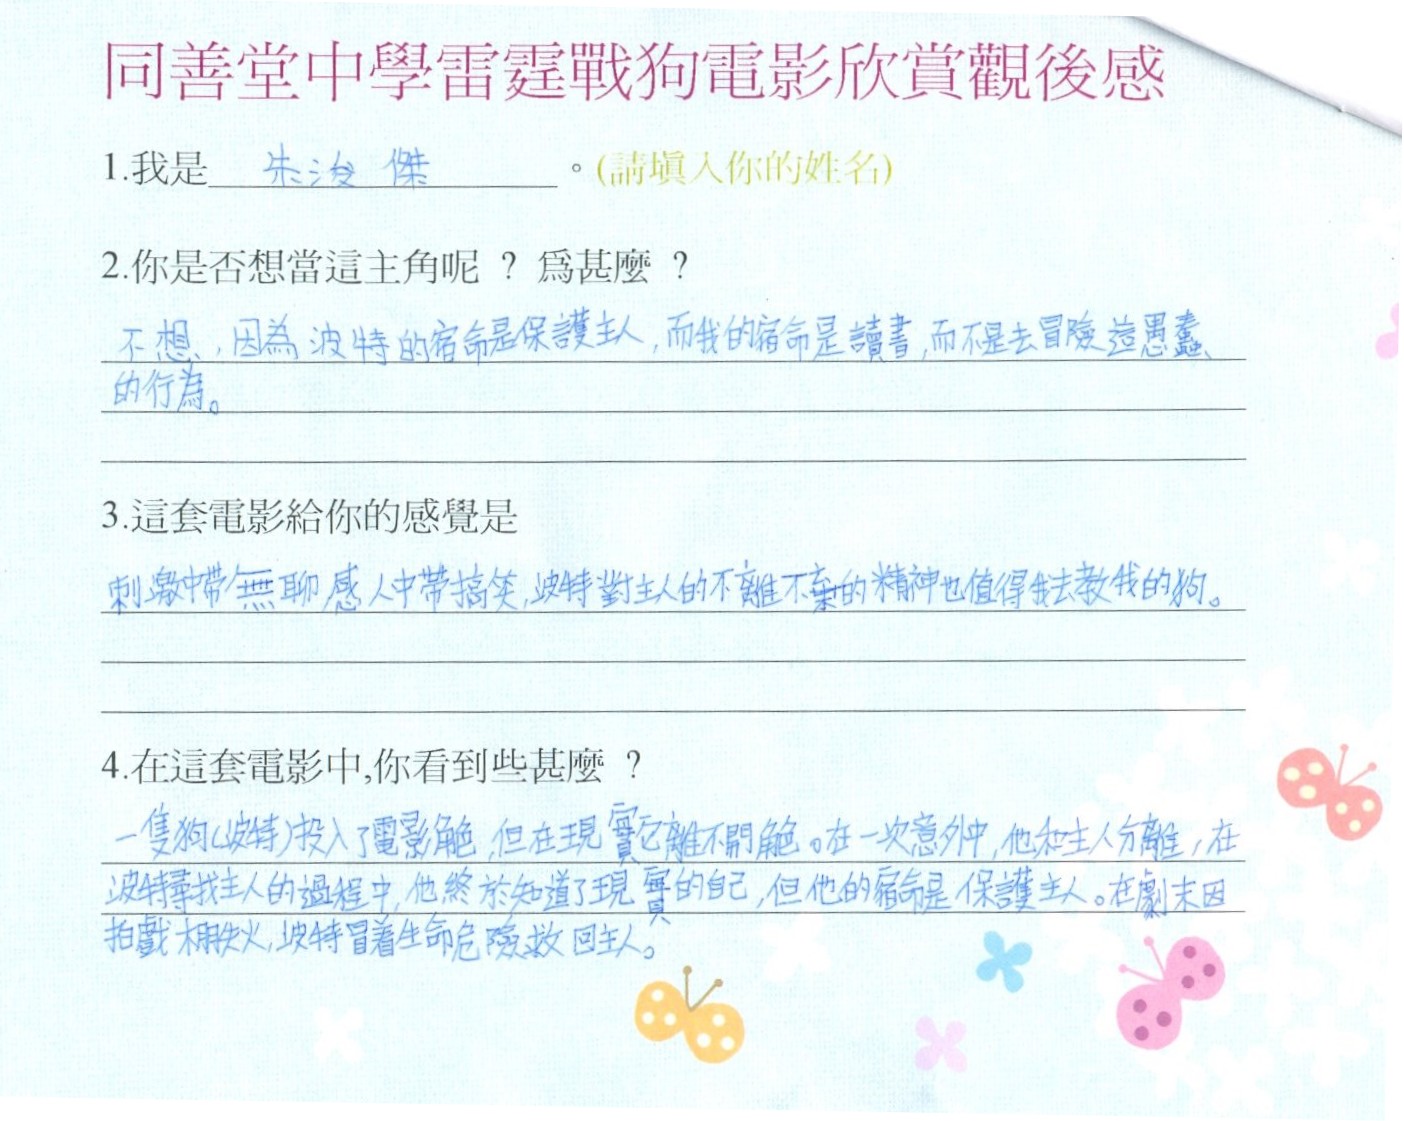 同善堂中學雷霆戰狗電影欣賞觀後感
1.我是 朱浚傑 。(請填入你的姓名)
2.你是否想當這主角呢 ? 為甚麼 ?
不想,因為波特的宿命是保護主人,而我的宿命是讀書,而不是去冒險這愚蠢
的行為。
3.這套電影給你的感覺是
刺激中帶無聊感人中帶搞笑,波特對主人的不離不棄的精神也值得我去教我的狗。
4.在這套電影中,你看到些甚麼 ?
一隻狗(波特)投入了電影角色,但在現實它離不開角色。在一次意外中,他和主人分離,在
波特尋找主人的過程中,他終於知道了現實的自己,但他的宿命是保護主人。在劇末因
拍戲棚失火,波特冒着生命危險救回主人。